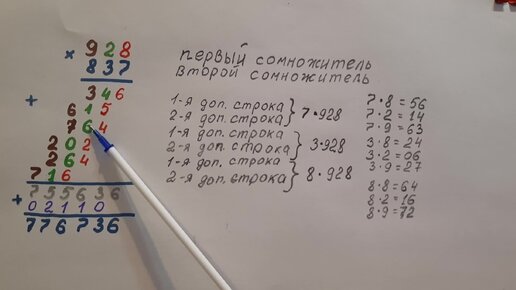 × 928
837
+
346
615
764
202
264
716
+ 755636
02110
776736
первый сомножитель
второй сомножитель
1-я доп. строка
2-я доп. строка } 7·928
1-я доп. строка
2-я доп. строка } 3·928
1-я доп. строка
2-я доп. строка } 8·928
7·8=56
7·2=14
7·9=63
3·8=24
3·2=06
3·9=27
8·8=64
8·2=16
8·9=72